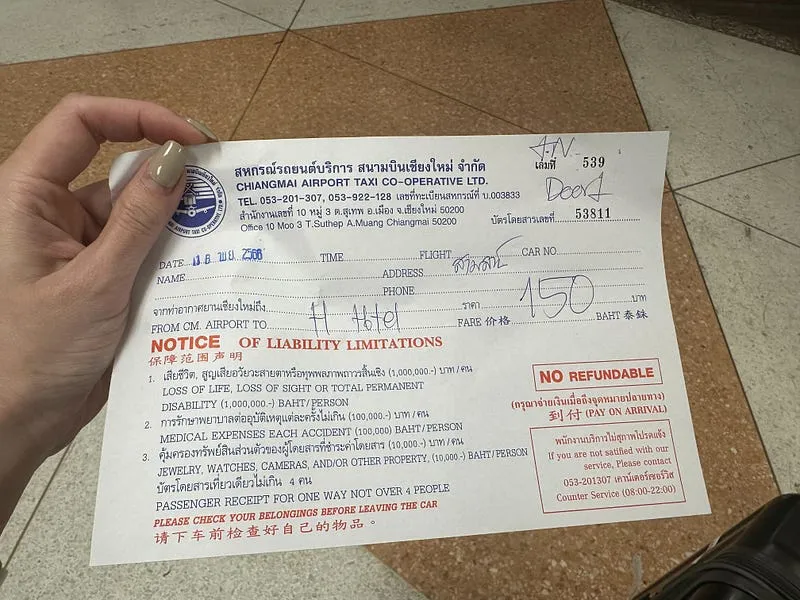 สหกรณ์รถยนต์บริการ สนามบินเชียงใหม่ จำกัด
CHIANGMAI AIRPORT TAXI CO-OPERATIVE LTD.
TEL. 053-201-307, 053-922-128 เลขที่ทะเบียนสหกรณ์ที่ บ.003833
สำนักงานเลขที่ 10 หมู่ 3 ต.สุเทพ อ.เมือง จ.เชียงใหม่ 50200
Office 10 Moo 3 T.Suthep A.Muang Chiangmai 50200
เล่มที่ 539
Door1
บัตรโดยสารเลขที่ 53811
DATE 18 พ.ย. 2566 TIME FLIGHT CAR NO.
NAME ADDRESS
PHONE
จากท่าอากาศยานเชียงใหม่ถึง H Hotel ราคา 150 บาท
FROM CM. AIRPORT TO FARE 价格 BAHT 泰铢
NOTICE OF LIABILITY LIMITATIONS
保障范围声明
1. เสียชีวิต, สูญเสียอวัยวะสายตาหรือทุพพลภาพถาวรสิ้นเชิง (1,000,000.-) บาท / คน
LOSS OF LIFE, LOSS OF SIGHT OR TOTAL PERMANENT
DISABILITY (1,000,000.-) BAHT/PERSON
2. การรักษาพยาบาลต่ออุบัติเหตุแต่ละครั้งไม่เกิน (100,000.-) บาท / คน
MEDICAL EXPENSES EACH ACCIDENT (100,000) BAHT/PERSON
3. คุ้มครองทรัพย์สินส่วนตัวของผู้โดยสารที่ชำระค่าโดยสาร (10,000.-) บาท / คน
JEWELRY, WATCHES, CAMERAS, AND/OR OTHER PROPERTY, (10,000.-) BAHT/PERSON
บัตรโดยสารเที่ยวเดียวไม่เกิน 4 คน
PASSENGER RECEIPT FOR ONE WAY NOT OVER 4 PEOPLE
PLEASE CHECK YOUR BELONGINGS BEFORE LEAVING THE CAR
请下车前检查好自己的物品。
NO REFUNDABLE
(กรุณาจ่ายเงินเมื่อถึงจุดหมายปลายทาง)
到付 (PAY ON ARRIVAL)
พนักงานบริการไม่สุภาพโปรดแจ้ง
If you are not satified with our
service, Please contact
053-201307 เคาน์เตอร์เซอร์วิส
Counter Service (08:00-22:00)